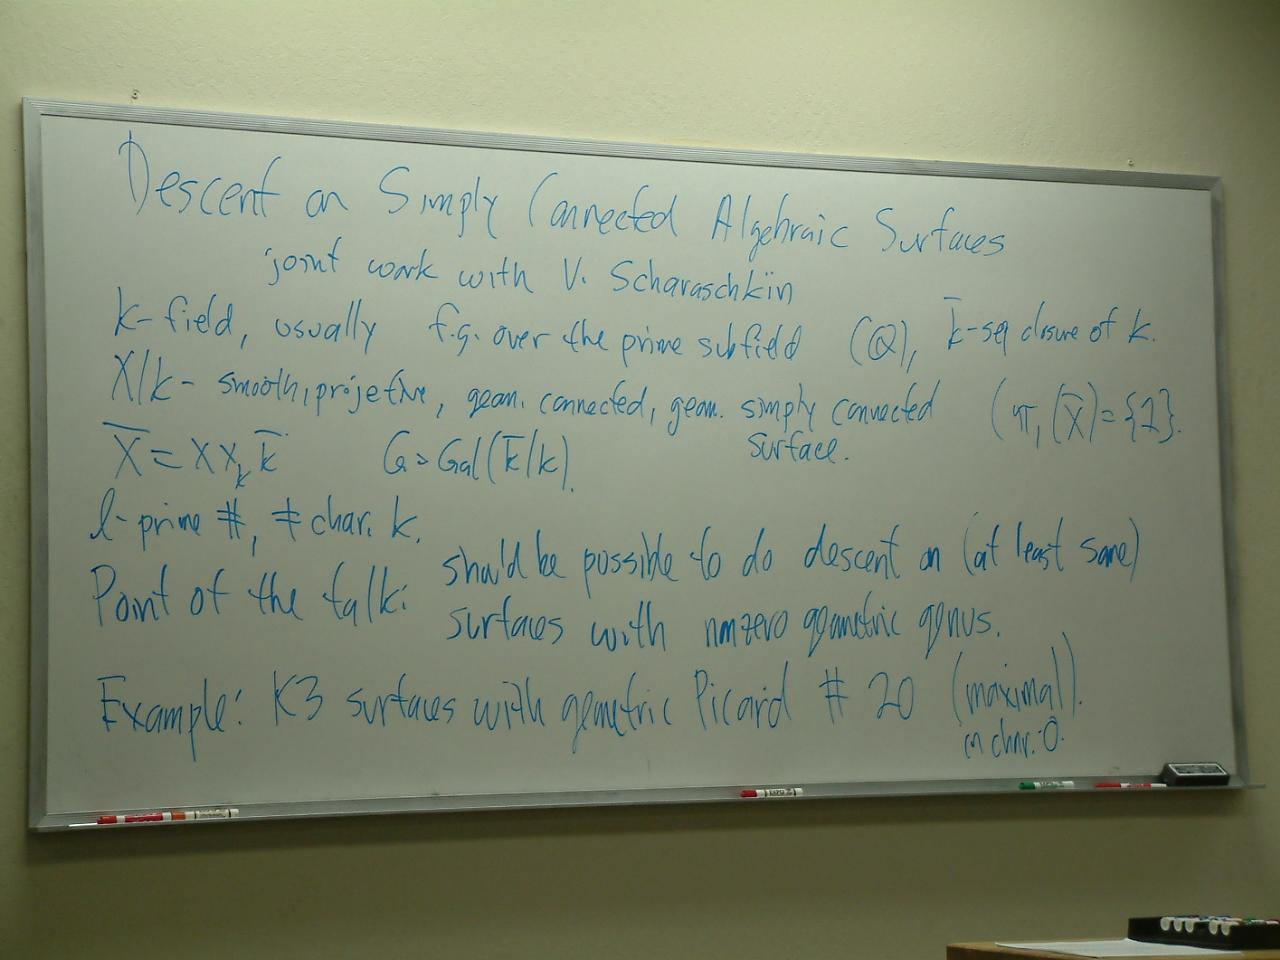 Descent on Simply Connected Algebraic Surfaces
joint work with V. Scharaschkin
k - field, usually f.g. over the prime subfield (Q), k̄ - sep closure of k.
X/k - smooth, projetive, geom. connected, geom. simply connected surface. (π₁(X̄) = {1}.
X̄ = X ×ₖ k̄ G = Gal(k̄/k).
l - prime #, ≠ char. k.
Point of the talk: should be possible to do descent on (at least some)
surfaces with nonzero geometric genus.
Example: K3 surfaces with geometric Picard # 20 (maximal).
in char. 0.